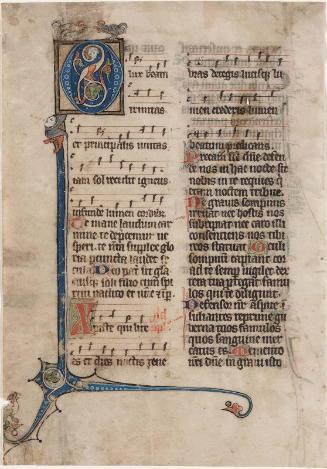 O lux beata
trinitas
et principalis unitas
iam sol recedit igneus
infunde lumen cordibus
Te mane laudum car
mine te deprecemur ves
peri te nostra supplex glo
ria per cuncta laudet se
cula Deo patri sit glo
riaeiusque soli filio cum spi
ritu paraclito et nunc
Christe qui lux
es et dies noctis tene
bras detegis lucisque lu
men crederis lumen
beatum predicans
Precamur sancte domine defen
de nos in hac nocte sit
nobis in te requies qui
etam noctem tribue
Ne gravis sompnus
irruat nec hostis nos
subripiat nec caro illi
consenciens nos tibi
reos statuat Oculi
sompnum capiant cor
ad te semper vigilet dex
tera tua protegat famu
los qui te diligunt
Defensor noster aspice
insidiantes reprime gu
berna tuos famulos
quos sanguine mer
catus es Memento
nostri domine in gravi isto